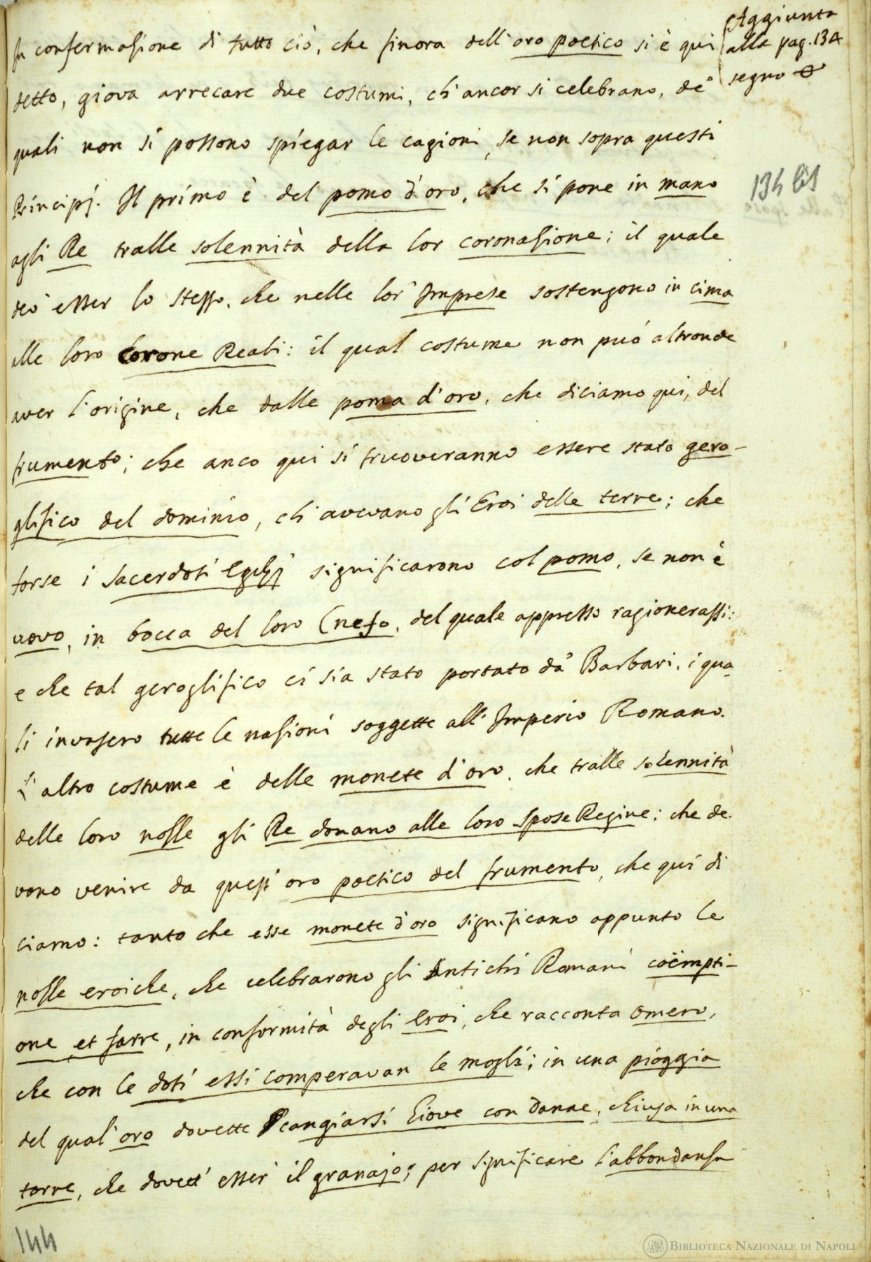 In confermasione di tutto ciò, che finora dell'oro poetico si è qui
Aggiunta
alla pag. 134
segno
detto, giova arrecare due costumi, ch'ancor si celebrano, de'
quali non si possono spiegar le cagioni, se non sopra questi
Principj. Il primo è del pomo d'oro, che si pone in mano
134 bis
agli Re tralle solennità della lor coronasione; il quale
deo' esser lo stesso, che nelle lor' Imprese sostengono in cima
alle loro Corone Reali: il qual costume non può altronde
aver l'origine, che dalle poma d'oro, che diciamo qui, del
frumento; che anco qui si truoveranno essere stato gero-
glifico del dominio, ch'avevano gli Eroi delle terre; che
forse i Sacerdoti Egizzj significarono col pomo, se non è
uovo, in bocca del loro Cnefo, del quale appresso ragionerassi:
e che tal geroglifico ci sia stato portato da' Barbari, i qua-
li invasero tutte le nasioni soggette all'Imperio Romano.
L'altro costume è delle monete d'oro, che tralle solennità
delle loro nosse gli Re donano alle loro Spose Regine; che de
vono venire da quest'oro poetico del frumento, che qui di
ciamo: tanto che esse monete d'oro significano appunto le
nosse eroiche, che celebrarono gli Antichi Romani coëmpti-
one et farre, in conformità degli Eroi, che racconta Omero,
che con le doti essi comperavan le mogli; in una pioggia
del qual'oro dovette cangiarsi Giove con Danae, chiusa in una
torre, che dovett'esser' il granajo; per significare l'abbondansa
144
BIBLIOTECA NAZIONALE DI NAPOLI